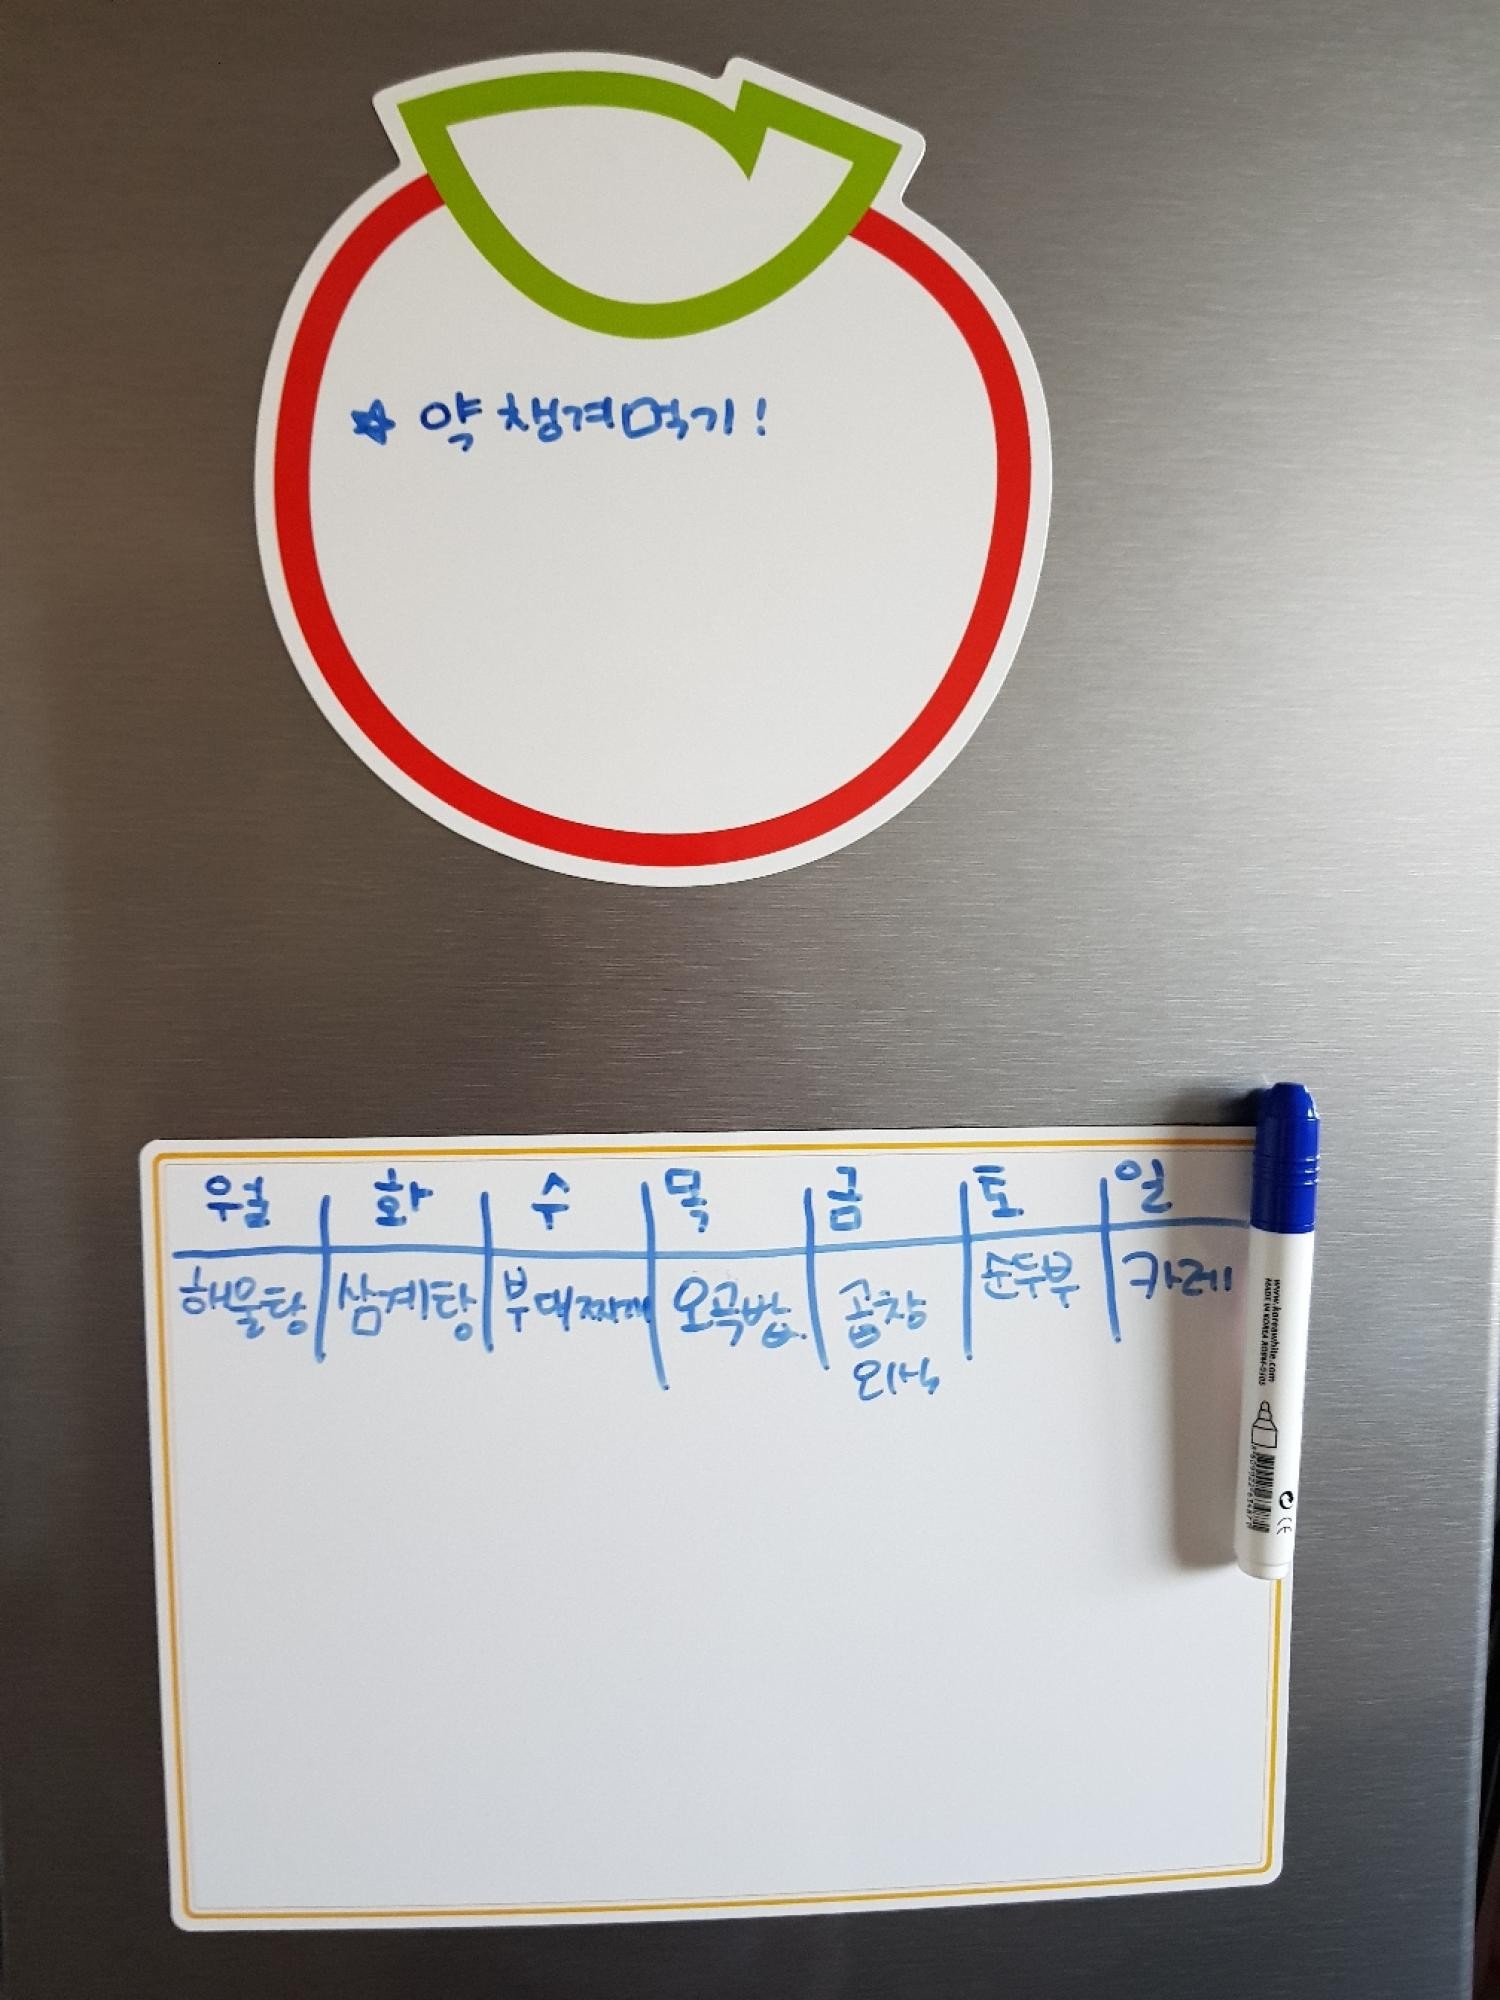 ☆ 약 챙겨먹기!
월 화 수 목 금 토 일
해물탕 삼계탕 부대찌개 오곡밥 곱창 순두부 카레
외식
www.koreawhite.com
MADE IN KOREA
CE